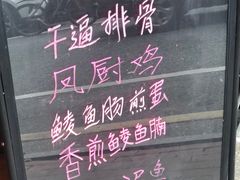 干逼排骨
凤厨鸡
鲮鱼肠煎蛋
香煎鲮鱼腩
鱼